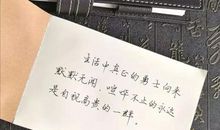 生活中真正的勇士向来
默默无闻，喧哗不止的永远
是自视高贵的一群。